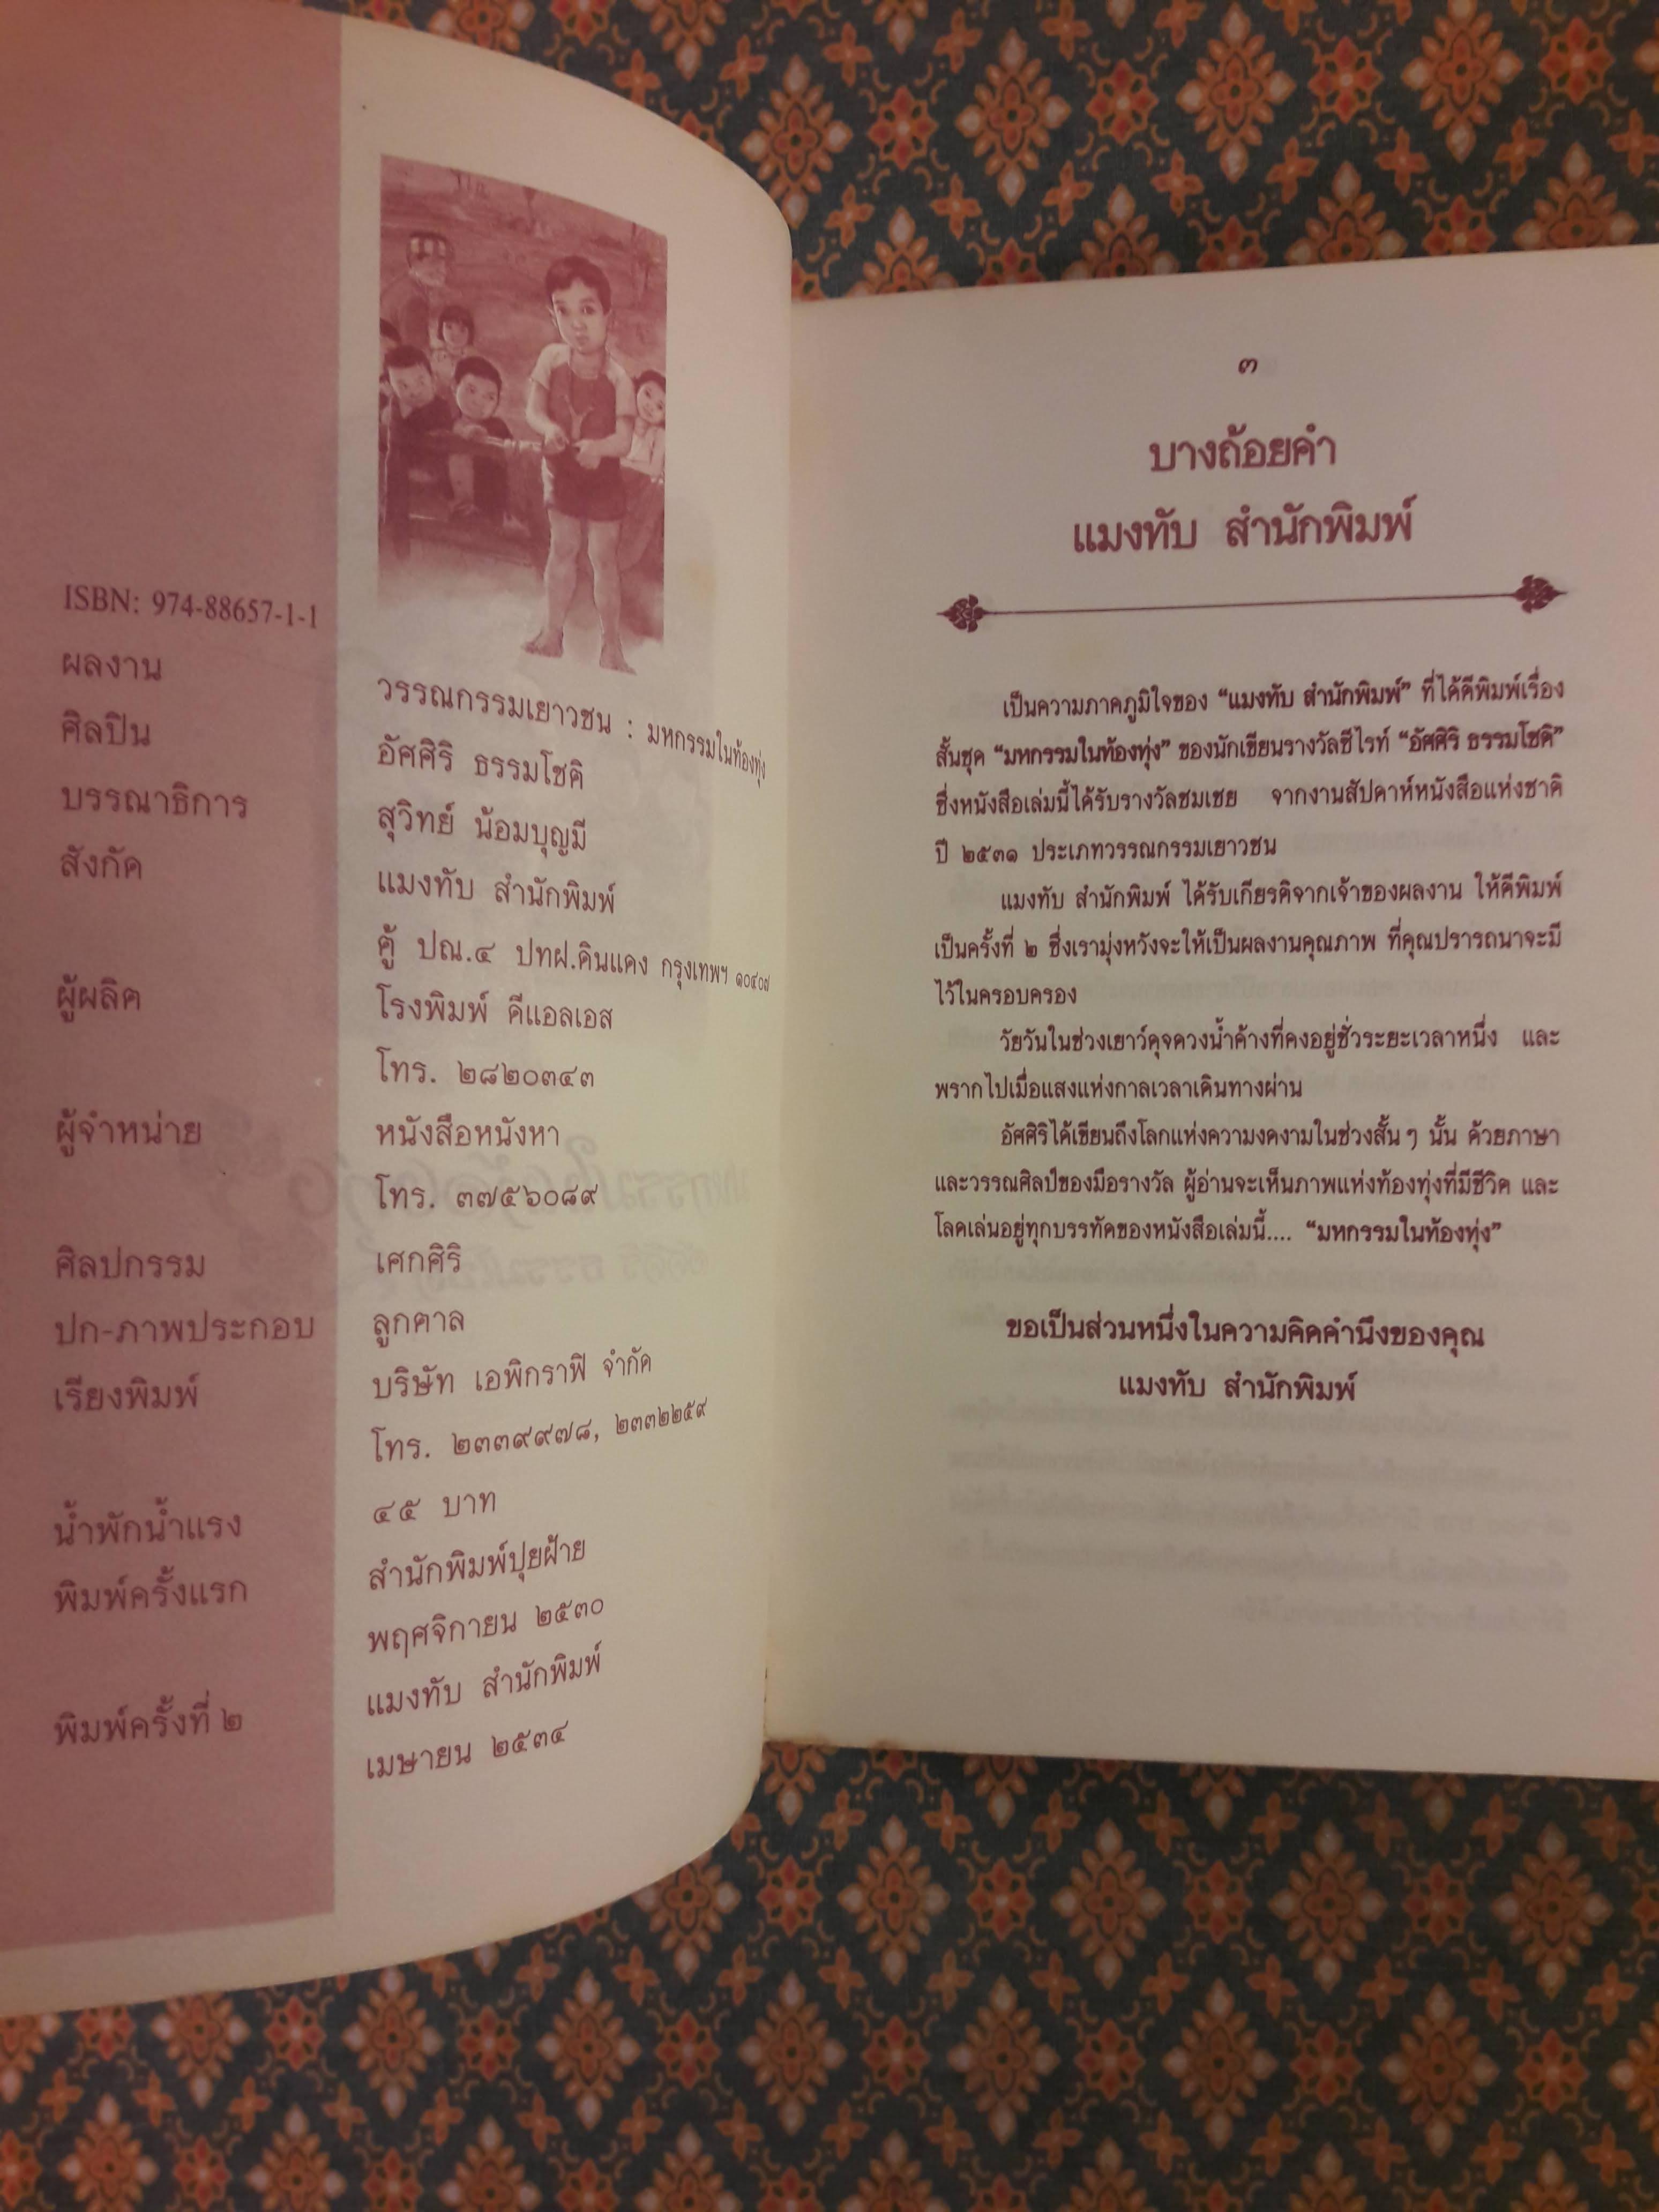 ISBN: 974-88657-1-1
ผลงาน วรรณกรรมเยาวชน : มหกรรมในท้องทุ่ง
ศิลปิน อัศศิริ ธรรมโชติ
บรรณาธิการ สุวิทย์ น้อมบุญมี
สังกัด แมงทับ สำนักพิมพ์
ตู้ ปณ.๔ ปทฝ.ดินแดง กรุงเทพฯ ๑๐๔๐๗
ผู้ผลิต โรงพิมพ์ ดีแอลเอส
โทร. ๒๘๒๐๓๔๓
ผู้จำหน่าย หนังสือหนังหา
โทร. ๓๗๕๖๐๘๙
ศิลปกรรม เศกศิริ
ปก-ภาพประกอบ ลูกตาล
เรียงพิมพ์ บริษัท เอพิกราฟิ จำกัด
โทร. ๒๓๓๙๙๗๘, ๒๓๓๒๒๕๙
น้ำพักน้ำแรง ๔๕ บาท
พิมพ์ครั้งแรก สำนักพิมพ์ปุยฝ้าย
พฤศจิกายน ๒๕๓๐
พิมพ์ครั้งที่ ๒ แมงทับ สำนักพิมพ์
เมษายน ๒๕๓๔
๓
บางถ้อยคำ
แมงทับ สำนักพิมพ์
เป็นความภาคภูมิใจของ “แมงทับ สำนักพิมพ์” ที่ได้ตีพิมพ์เรื่อง
สั้นชุด “มหกรรมในท้องทุ่ง” ของนักเขียนรางวัลซีไรท์ “อัศศิริ ธรรมโชติ”
ซึ่งหนังสือเล่มนี้ได้รับรางวัลชมเชย จากงานสัปดาห์หนังสือแห่งชาติ
ปี ๒๕๓๑ ประเภทวรรณกรรมเยาวชน
แมงทับ สำนักพิมพ์ ได้รับเกียรติจากเจ้าของผลงาน ให้ตีพิมพ์
เป็นครั้งที่ ๒ ซึ่งเรามุ่งหวังจะให้เป็นผลงานคุณภาพ ที่คุณปรารถนาจะมี
ไว้ในครอบครอง
วัยวันในช่วงเยาว์ดุจดวงน้ำค้างที่คงอยู่ชั่วระยะเวลาหนึ่ง และ
พรากไปเมื่อแสงแห่งกาลเวลาเดินทางผ่าน
อัศศิริได้เขียนถึงโลกแห่งความงดงามในช่วงสั้น ๆ นั้น ด้วยภาษา
และวรรณศิลป์ของมือรางวัล ผู้อ่านจะเห็นภาพแห่งท้องทุ่งที่มีชีวิต และ
โลดเล่นอยู่ทุกบรรทัดของหนังสือเล่มนี้.... “มหกรรมในท้องทุ่ง”
ขอเป็นส่วนหนึ่งในความคิดคำนึงของคุณ
แมงทับ สำนักพิมพ์